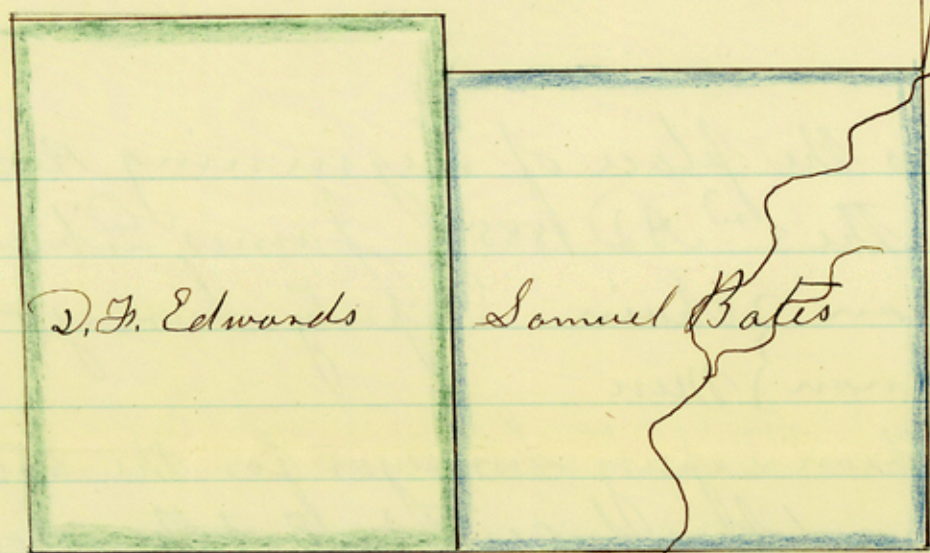 D. F. Edwards
Samuel Bates